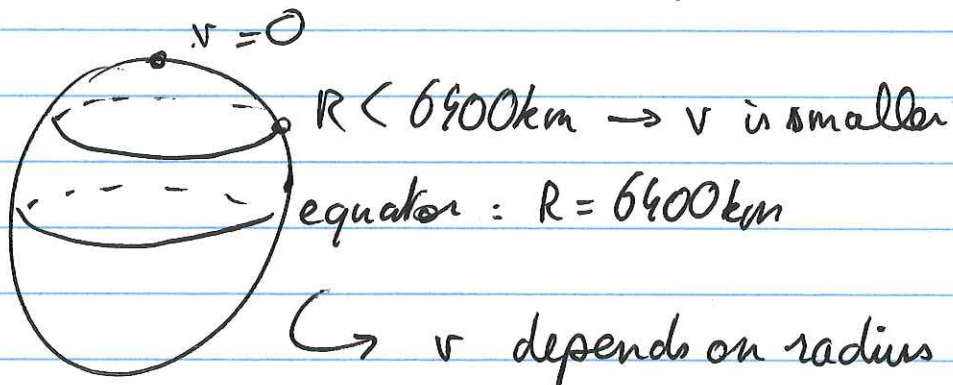 v = 0
R < 6400km → v is smaller
equator : R = 6400km
↳ v depends on radius